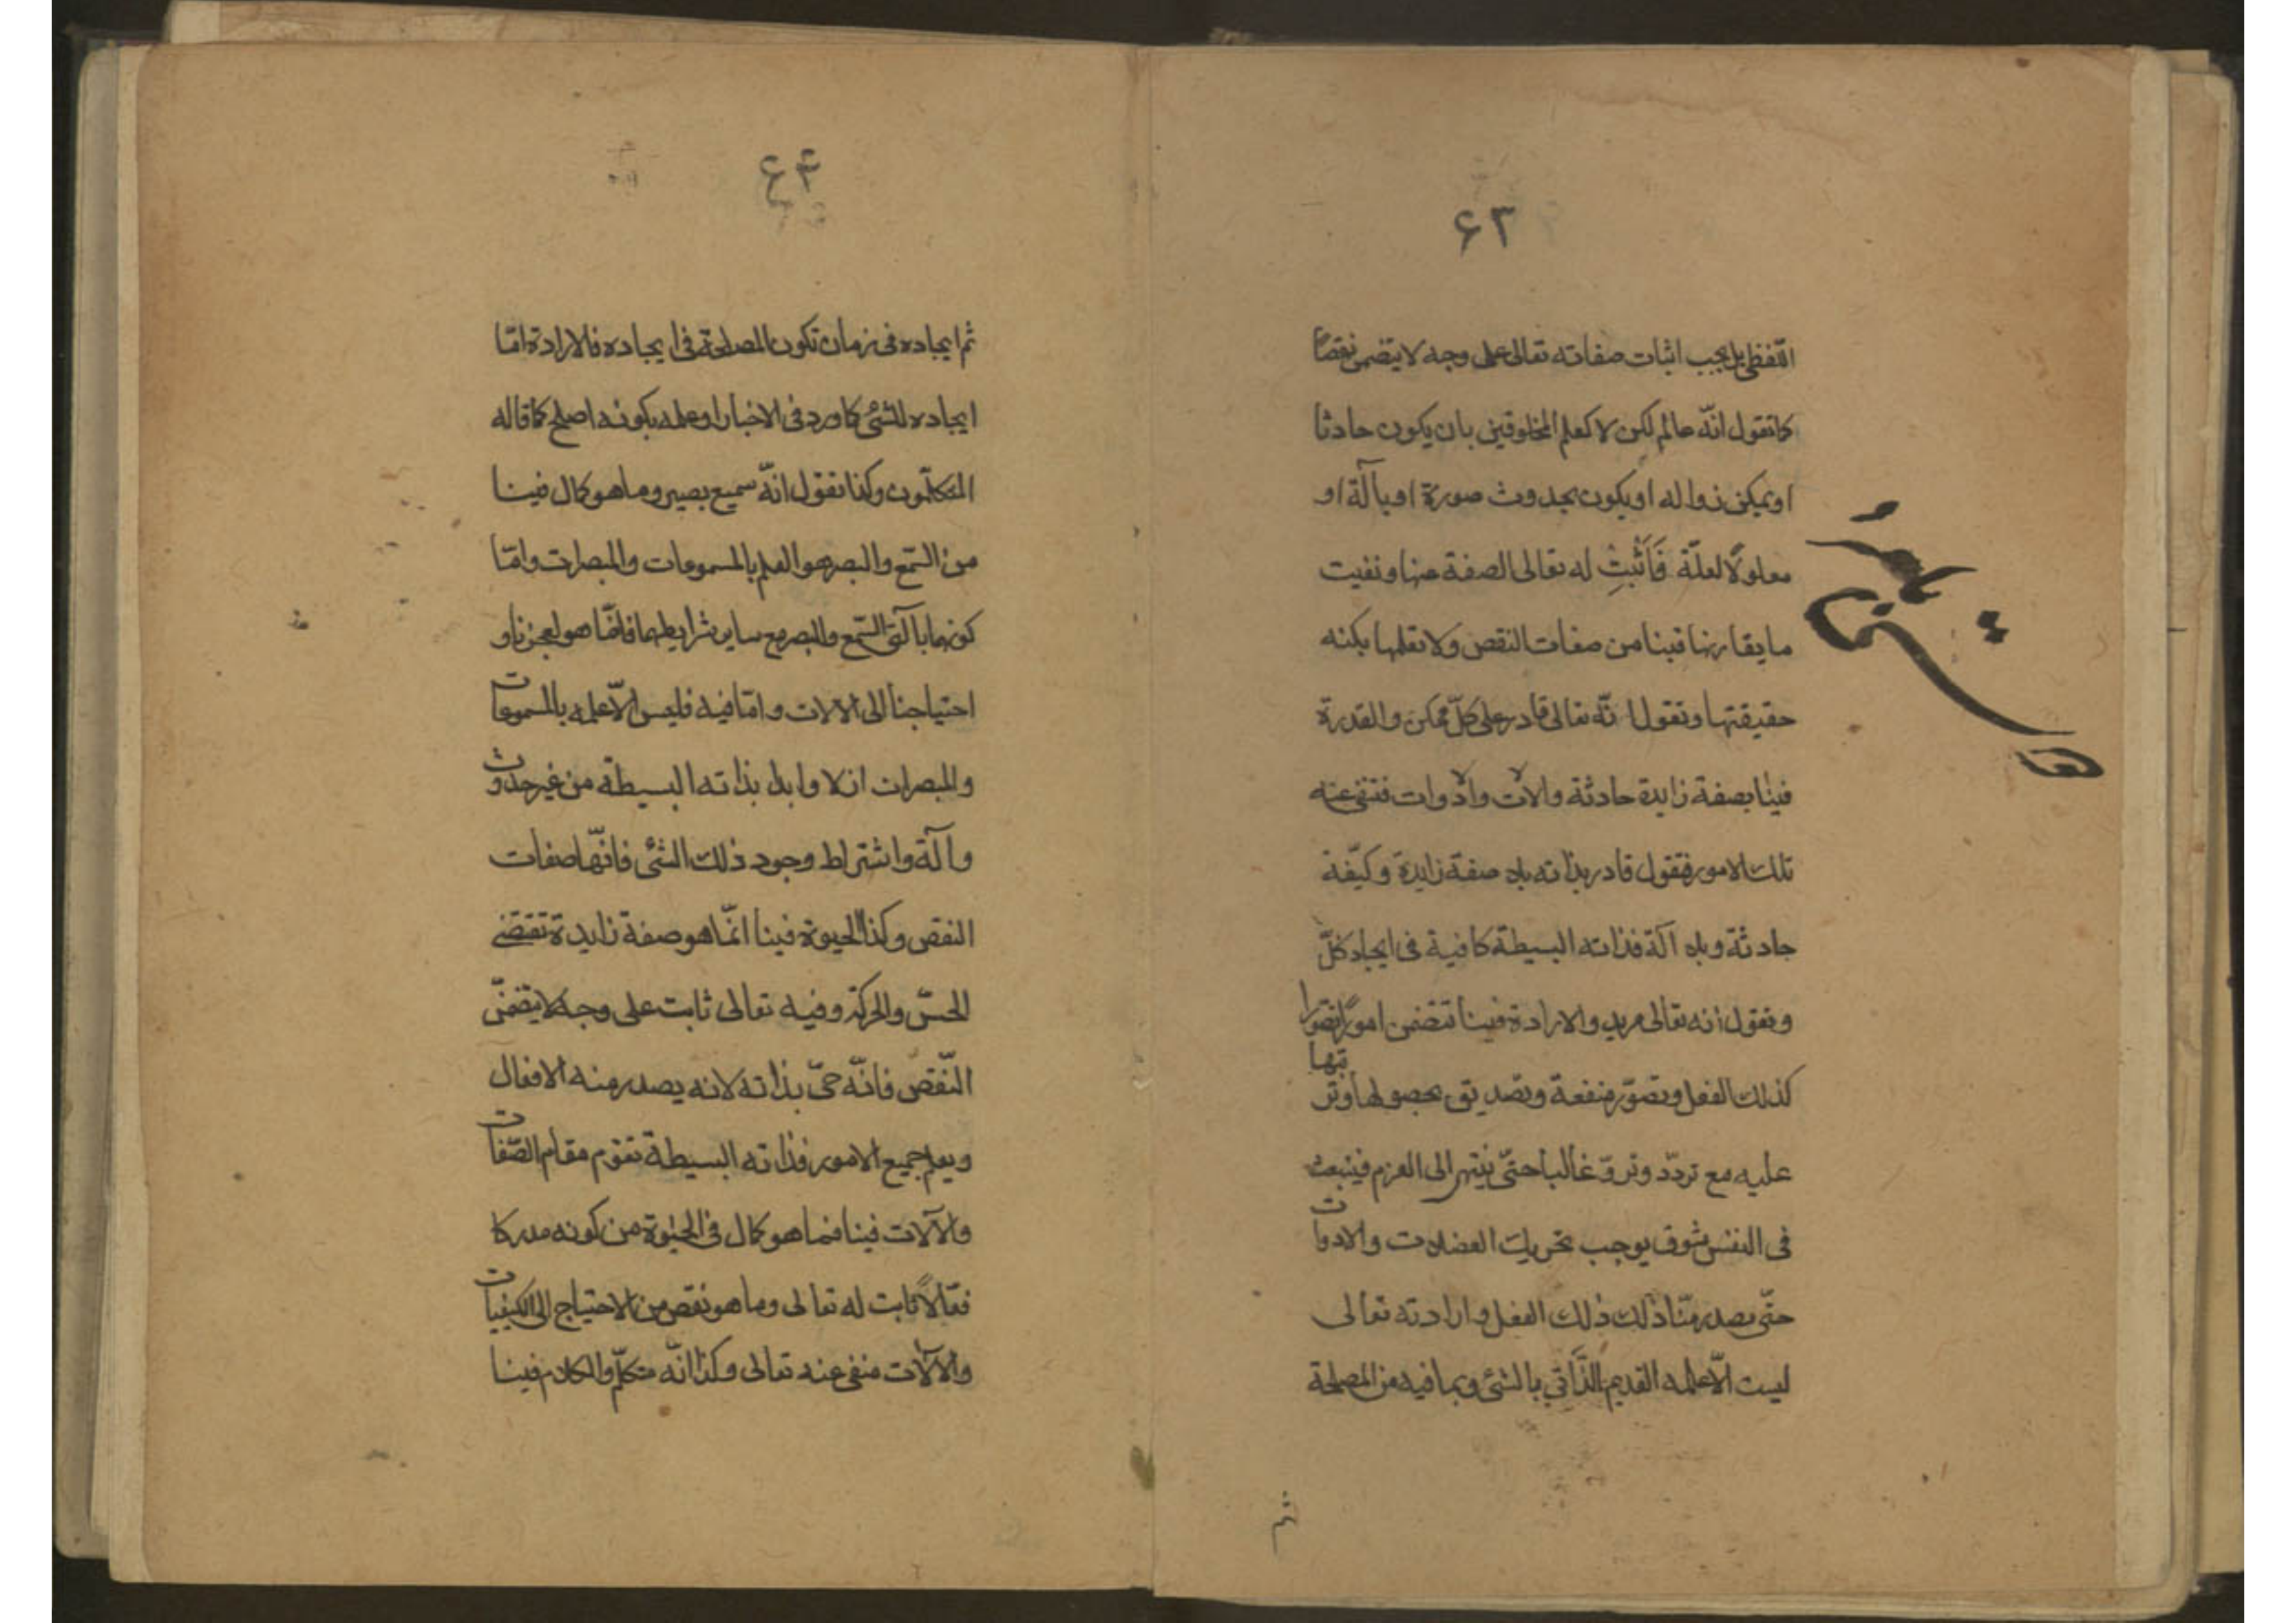 ۶۳
اللفظی بل یجب اثبات صفاته تعالی علی وجه لا یتضمن نقصًا
کما تقول انّه عالم لکن لا کعلم المخلوقین بان یکون حادثا
او یمکن زواله او یکون بحدوث صورة او بآلة او
معلولًا لعلّة فَاَثْبتِ له تعالی الصفة منها و نفیت
ما یقارنها فینا من صفات النقص ولا تعلمها بکنه
حقیقتها و تقول انّه تعالی قادر علی کلّ ممکن والقدرة
فینا بصفة زایدة حادثة والآت والادوات فتنفی عنه
تلک الامور فتقول قادر بذاته بلا صفة زایدة وکیّفة
حادثة وبلا آلة فذاته البسیطة کافیة فی ایجاد کلّ
و تقول انه تعالی مرید والارادة فینا تتضمن امورًا تصوّرا
کذلک الفعل وتصوّر منفعة وتصدیق بحصولها وترتبها
علیه مع تردّد وتروّ غالبا حتّی ینتهی الی العزم فینبعث
فی النفس شوق یوجب تحریک العضلات والادوات
حتّی یصدر منّا ذلک ذلک الفعل وارادته تعالی
لیست الّا علمه القدیم الذّاتی بالشئ وبما فیه من المصلحة
ثم
۶۴
ثم ایجاده فی زمان تکون المصلحة فی ایجاده فالارادة امّا
ایجاده للشئ کما ورد فی الاخبار او علمه بکونه اصلح کما قاله
المتکلّمون وکذا نقول انّه سمیع بصیر وما هو کمال فینا
من السّمع والبصر هو العلم بالمسموعات والمبصرات وامّا
کونهما بآلتی السّمع والبصر مع سایر شرایطهما فانّما هو لعجزنا و
احتیاجنا الی الالات و امّا فیه فلیس الّا علمه بالمسموعات
والمبصرات ازلا وابدا بذاته البسیطة من غیر حدوث
وآلة واشتراط وجود ذلک الشئ فانّها صفات
النقص وکذا الحیوة فینا انّما هو صفة زایدة تقتضی
الحسّ والحرکة وفیه تعالی ثابت علی وجه لا یتضمّن
النّقص فانّه حیّ بذاته لانه یصدر منه الافعال
ویعلم جمیع الامور فذاته البسیطة تقوم مقام الصّفات
والآلات فینا فما هو کمال فی الحیٰوة من کونه مدرکا
فعّالًا ثابت له تعالی وما هو نقص من الاحتیاج الی الکیفیات
والآلات منفی عنه تعالی وکذا انّه متکلّم والکلام فینا